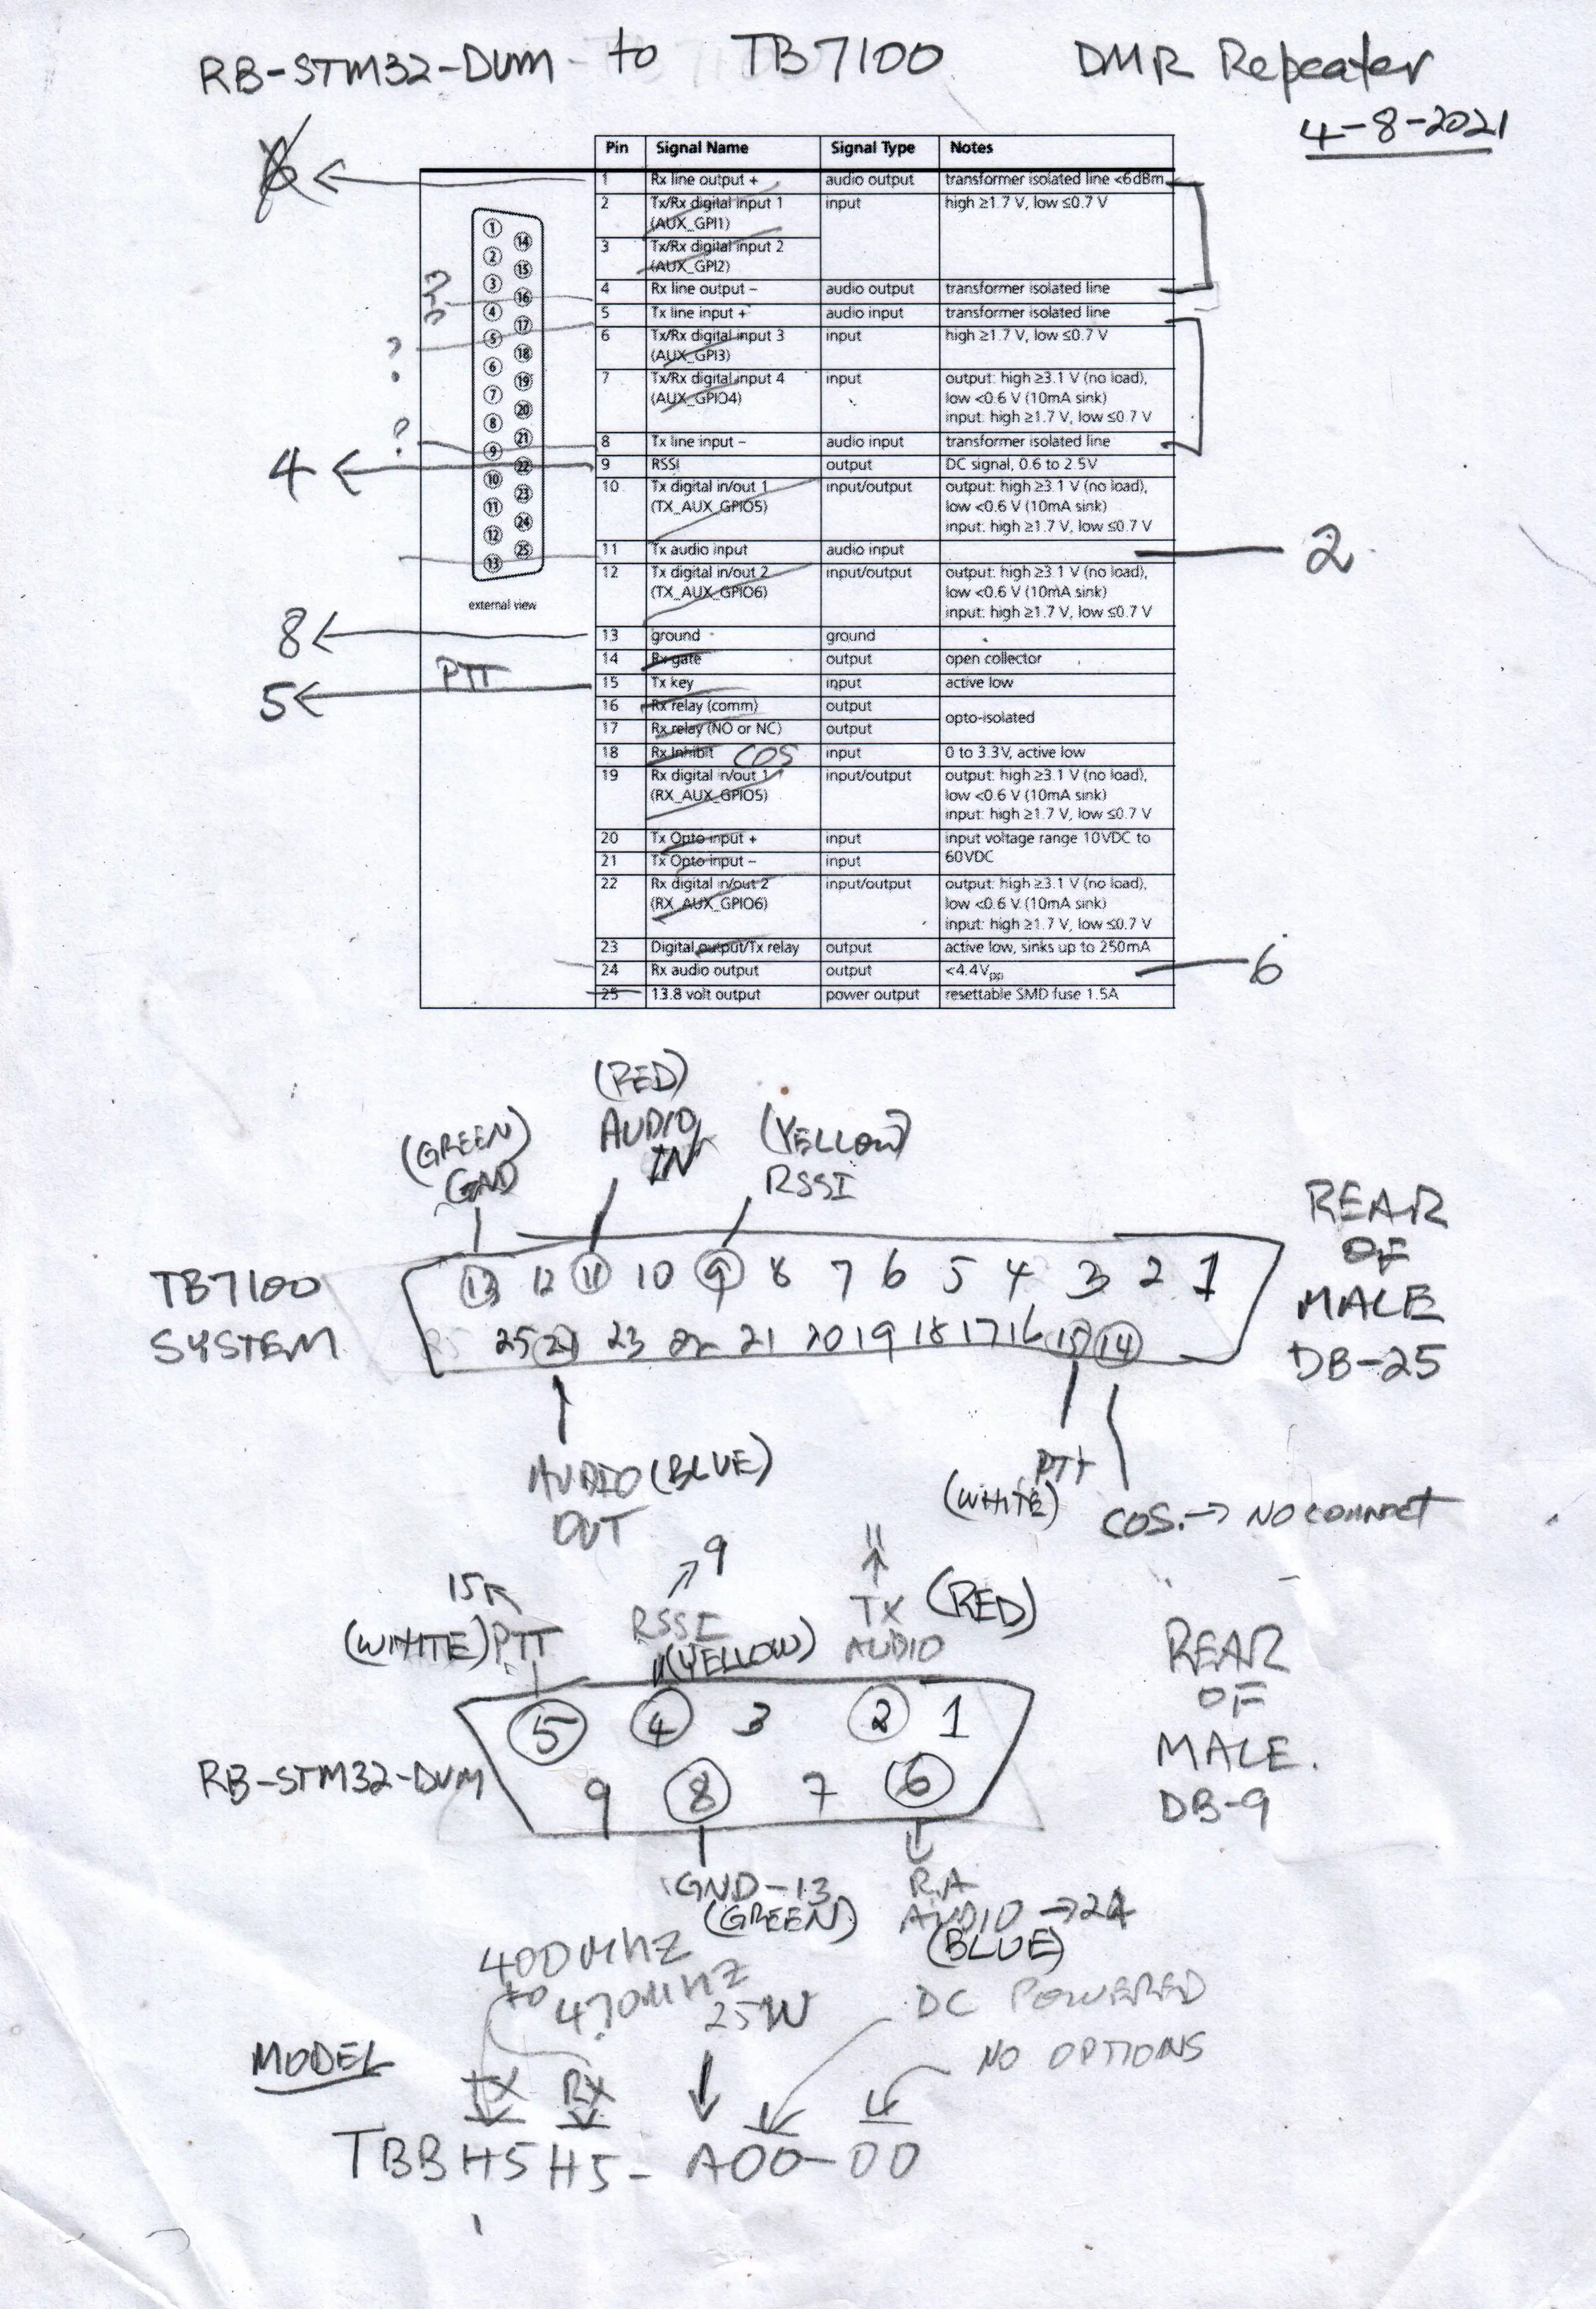 RB-STM32-DVM to TB7100 DMR Repeater
4-8-2021
Pin Signal Name Signal Type Notes
1 Rx line output + audio output transformer isolated line <6dBm
2 Tx/Rx digital input 1 input high ≥1.7 V, low ≤0.7 V
(AUX_GPI1)
3 Tx/Rx digital input 2
(AUX_GPI2)
4 Rx line output – audio output transformer isolated line
5 Tx line input + audio input transformer isolated line
6 Tx/Rx digital input 3 input high ≥1.7 V, low ≤0.7 V
(AUX_GPI3)
7 Tx/Rx digital input 4 input output: high ≥3.1 V (no load),
(AUX_GPIO4) low <0.6 V (10mA sink)
input: high ≥1.7 V, low ≤0.7 V
8 Tx line input – audio input transformer isolated line
9 RSSI output DC signal, 0.6 to 2.5V
10 Tx digital in/out 1 input/output output: high ≥3.1 V (no load),
(TX_AUX_GPIO5) low <0.6 V (10mA sink)
input: high ≥1.7 V, low ≤0.7 V
11 Tx audio input audio input
12 Tx digital in/out 2 input/output output: high ≥3.1 V (no load),
(TX_AUX_GPIO6) low <0.6 V (10mA sink)
input: high ≥1.7 V, low ≤0.7 V
13 ground ground
14 Rx gate output open collector
15 Tx key input active low
16 Rx relay (comm) output opto-isolated
17 Rx relay (NO or NC) output
18 Rx Inhibit COS input 0 to 3.3V, active low
19 Rx digital in/out 1 input/output output: high ≥3.1 V (no load),
(RX_AUX_GPIO5) low <0.6 V (10mA sink)
input: high ≥1.7 V, low ≤0.7 V
20 Tx Opto input + input input voltage range 10VDC to
21 Tx Opto input – input 60VDC
22 Rx digital in/out 2 input/output output: high ≥3.1 V (no load),
(RX_AUX_GPIO6) low <0.6 V (10mA sink)
input: high ≥1.7 V, low ≤0.7 V
23 Digital output/Tx relay output active low, sinks up to 250mA
24 Rx audio output output <4.4Vpp
25 13.8 volt output power output resettable SMD fuse 1.5A
1 14
2 15
3 16
4 17
5 18
6 19
7 20
8 21
9 22
10 23
11 24
12 25
13
external view
6
?
?
4
8
PTT
5
2
6
(GREEN)
GND
(RED)
AUDIO
IN
(YELLOW)
RSSI
TB7100
SYSTEM
13 12 11 10 9 8 7 6 5 4 3 2 1
25 24 23 22 21 20 19 18 17 16 15 14
REAR
OF
MALE
DB-25
AUDIO (BLUE)
OUT
PTT
(WHITE)
COS. → NO CONNECT
15
(WHITE) PTT
9
RSSI
(YELLOW)
11
TX (RED)
AUDIO
5 4 3 2 1
9 8 7 6
RB-STM32-DVM
REAR
OF
MALE.
DB-9
GND-13
(GREEN)
RX
AUDIO → 24
(BLUE)
400MHZ
to
470MHZ
25W
DC POWERED
NO OPTIONS
MODEL
TX RX
TBBH5H5-A00-00